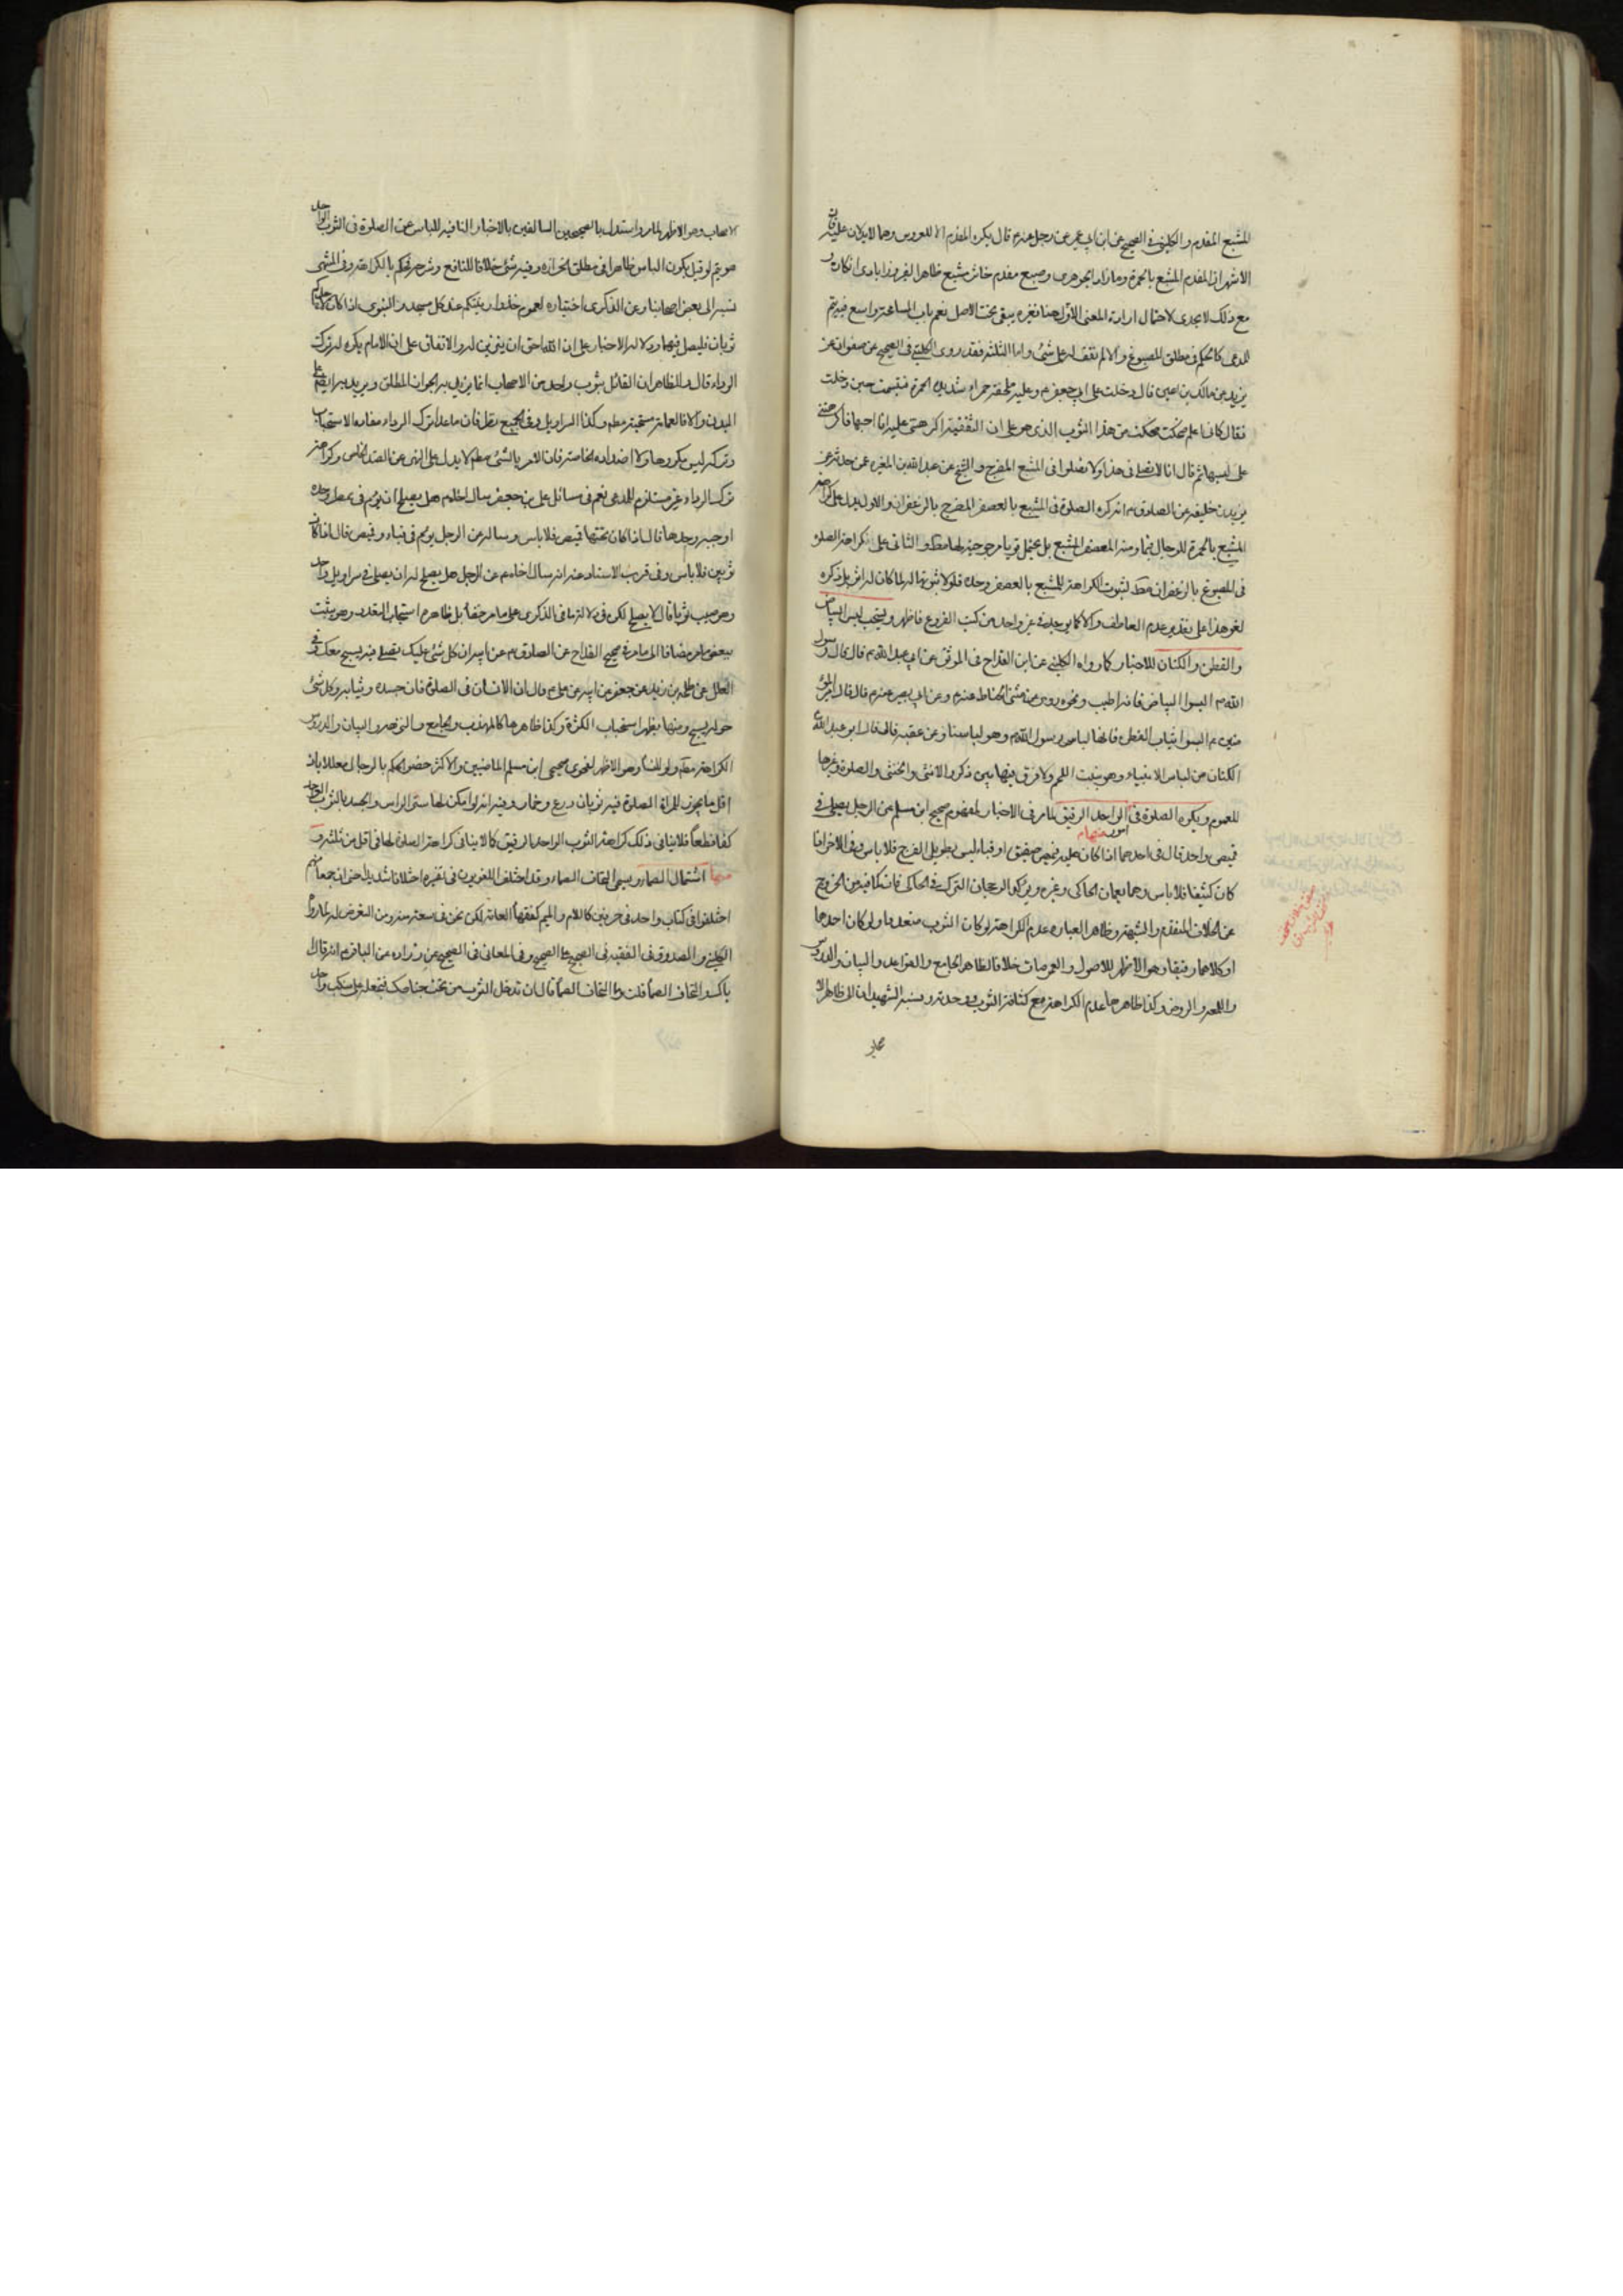 المشبع المفدم والكليني في الصحيح عن ابن ابي عمير عن رجل عنه ع قال يكره المفدم الا للعروس وهما لا يدلان عليه فان
الاشهر ان المفدم المشبع بالحمرة وما زاد الجوهري وصبغ مفدم خاثر مشبع ظاهر الفيروزابادي انكاره و
مع ذلك لا يجدي لاحتمال ارادة المعنى الاول هنا فغيره يبقى تحت الاصل نعم باب المسامحة واسع فيه يتم
المدعى كالحكم في مطلق المصبوغ والا لم نقف له على شئ واما الثلثه فقد روى الكليني في الصحيح عن صفوان عن
بريد عن مالك بن اعين قال دخلت على ابي جعفر ع وعليه ملحفة حمراء شديدة الحمرة فتبسمت حين دخلت
فقال كانى اعلم لم ضحكت ضحكت من هذا الثوب الذي هو على ان الثقفية اكرهتني عليه وانا احبها فاكرهتني
على لبسها ثم قال انا لا نصلي في هذا ولا تصلوا في المشبع المضرج والشيخ عن عبد الله بن المغيره عمن حدثه عن
يزيد بن خليفه عن الصادق ع انه كره الصلوة في المشبع بالعصفر المضرج بالزعفران والاول يدل على كراهة
المشبع بالحمرة للرجال فيها ومنه المعصفر المشبع بل يحتمل قويا مرجوحية لبسها مطلقا والثاني على كراهة الصلوة
في المصبوغ بالزعفران فقط لثبوت الكراهة للمشبع بالعصفر وحده فلولا ثبوتها له لما كان له اثر بل ذكره
لغو هذا على تقدير عدم العاطف والا كما يوجد في غير واحد من كتب الفروع فاظهر ويستحب لبس البياض
والقطن والكتان للاخبار كما رواه الكليني عن ابن القداح في الموثق عن ابي عبد الله ع قال قال رسول
الله ص البسوا البياض فانه اطيب ونحوه روى عن مثنى الحناط عنه ع وعن ابي بصير عنه ع قال قال امير المؤ
منين ع البسوا ثياب القطن فانها لباس رسول الله ص وهو لباسنا وعن عقبة قال قال ابو عبد الله ع
الكتان من لباس الانبياء وهو ينبت اللحم ولا فرق فيها بين ذكر والانثى والخنثى والصلوة وغيرها
للعموم ويكره الصلوة في امور منها الواحد الرقيق لما مر في الاخبار لمفهوم صحيح ابن مسلم عن الرجل يصلي في
قميص واحد قال في احدهما اذا كان عليه قميص صفيق او قباء ليس بطويل الفرج فلا باس وفي الاخر اذا
كان كثيفا فلا باس وهما يعمان الحاكي وغيره ويذكر الرجحان الترك في الحاكي فانه كافيه من الخروج
عن الخلاف المتقدم والشبهة وظاهر العباره عدم الكراهة لو كان الثوب متعددا ولو كان احدهما
او كلاهما رقيقا وهو الاظهر للاصول والعمومات خلافا لظاهر الجامع والقواعد والبيان والدروس
واللمعه والروض وكذا ظاهرها عدم الكراهة مع كثافة الثوب ووحدته ونسبه الشهيدان الى ظاهر الا
صحاب
الاصحاب وهو الاظهر لما مر واستدل بالصحيحين السالفين بالاخبار النافيه للباس عن الصلوة في الثوب الواحد
هو يتم لو قيل بكون الباس ظاهرا في مطلق الحزازه وفيه شئ خلافا للنافع وشرحه فحكم بالكراهة وفي المنتهى
نسبه الى بعض اصحابنا وعن الذكرى اختياره لعموم خذوا زينتكم عند كل مسجد والنبوي اذا كان لاحدكم
ثوبان فليصل فيهما ودلالة الاخبار على ان الله احق ان يتزين له والاتفاق على ان الامام يكره له ترك
الرداء قال والظاهر ان القائل بثوب واحد من الاصحاب انما يريد به الجواز المطلق ويريد به ايضا على
البدن والا فالعمامة مستحبة مطلقا وكذا السراويل وفي الجميع نظر فان ما عدا ترك الرداء مفاده الاستحباب
وتركه ليس مكروها ولا اضداده الخاصة فان الامر بالشئ مطلقا لا يدل على النهي عن الضد الخاص وكراهة
ترك الرداء غير مستلزم للمدعى نعم في مسائل علي بن جعفر سال اخاه ع هل يصلح ان يؤم في ممطر وحده
او جبه وحدها قال اذا كان تحتها قميص فلا باس وساله عن الرجل يؤم في قباء وقميص قال اذا كانا
ثوبين فلا باس وفي قرب الاسناد عنه انه سال اخاه ع عن الرجل هل يصلح له ان يصلي في سراويل واحد
وهو يصيب ثوبا قال لا يصلح لكن في دلالتها في الذكرى على ما مر خفاء بل ظاهره استحباب التعدد وهو يثبت
ببعض ما مر مضافا الى ما مر في صحيح القداح عن الصادق ع عن ابيه ان كل شئ عليك تصلي فيه يسبح معك وفي
العلل عن طلحه بن زيد عن جعفر عن ابيه عن علي ع قال ان الانسان في الصلوة فان جسده وثيابه وكل شئ
حوله يسبح ومنهما يظهر استحباب الكثرة وكذا ظاهرها كالمهذب والجامع والتبصره والبيان والدروس
الكراهة مطلقا ولو للنساء وهو الاظهر لفحوى صحيحي ابن مسلم الماضيين والاكثر خصوا الحكم بالرجال معللا بان
اقل ما يجوز للمراة الصلوة فيه ثوبان درع وخمار وفيه انه لو امكن لها ستر الراس والجسد بالثوب الواحد
كفاها قطعا فلا ينافي ذلك كراهة الثوب الواحد الرقيق كما لا ينافي كراهة الصلوة لها في اقل من ثلثه و
منها اشتمال الصماء ويسمى التحاف الصماء وقد اختلف اللغويون في تفسيره اختلافا شديدا حتى ان جمعا منهم
اختلفوا في كتاب واحد في حرفين كاللام والميم كفقهاء العامة لكن نحن في سعة منه ومن التعرض له لما رواه
الكليني والصدوق في الفقيه في الصحيح على الصحيح وفي المعاني في الصحيح عن زراره عن الباقر ع انه قال
اياك والتحاف الصماء قلت وما التحاف الصماء قال ان تدخل الثوب من تحت جناحك فتجعله على منكب واحد